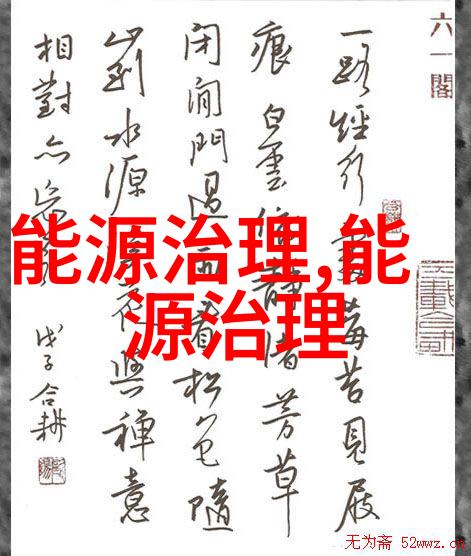 六一閣
一路經行處莓苔見屐
痕白雲依靜渚芳草
閉閒門過雨看松色隨
山到水源溪花與禅意
相對亦忘言
戊子合耕
能源治理,能
源治理
无为斋 52wwz.c